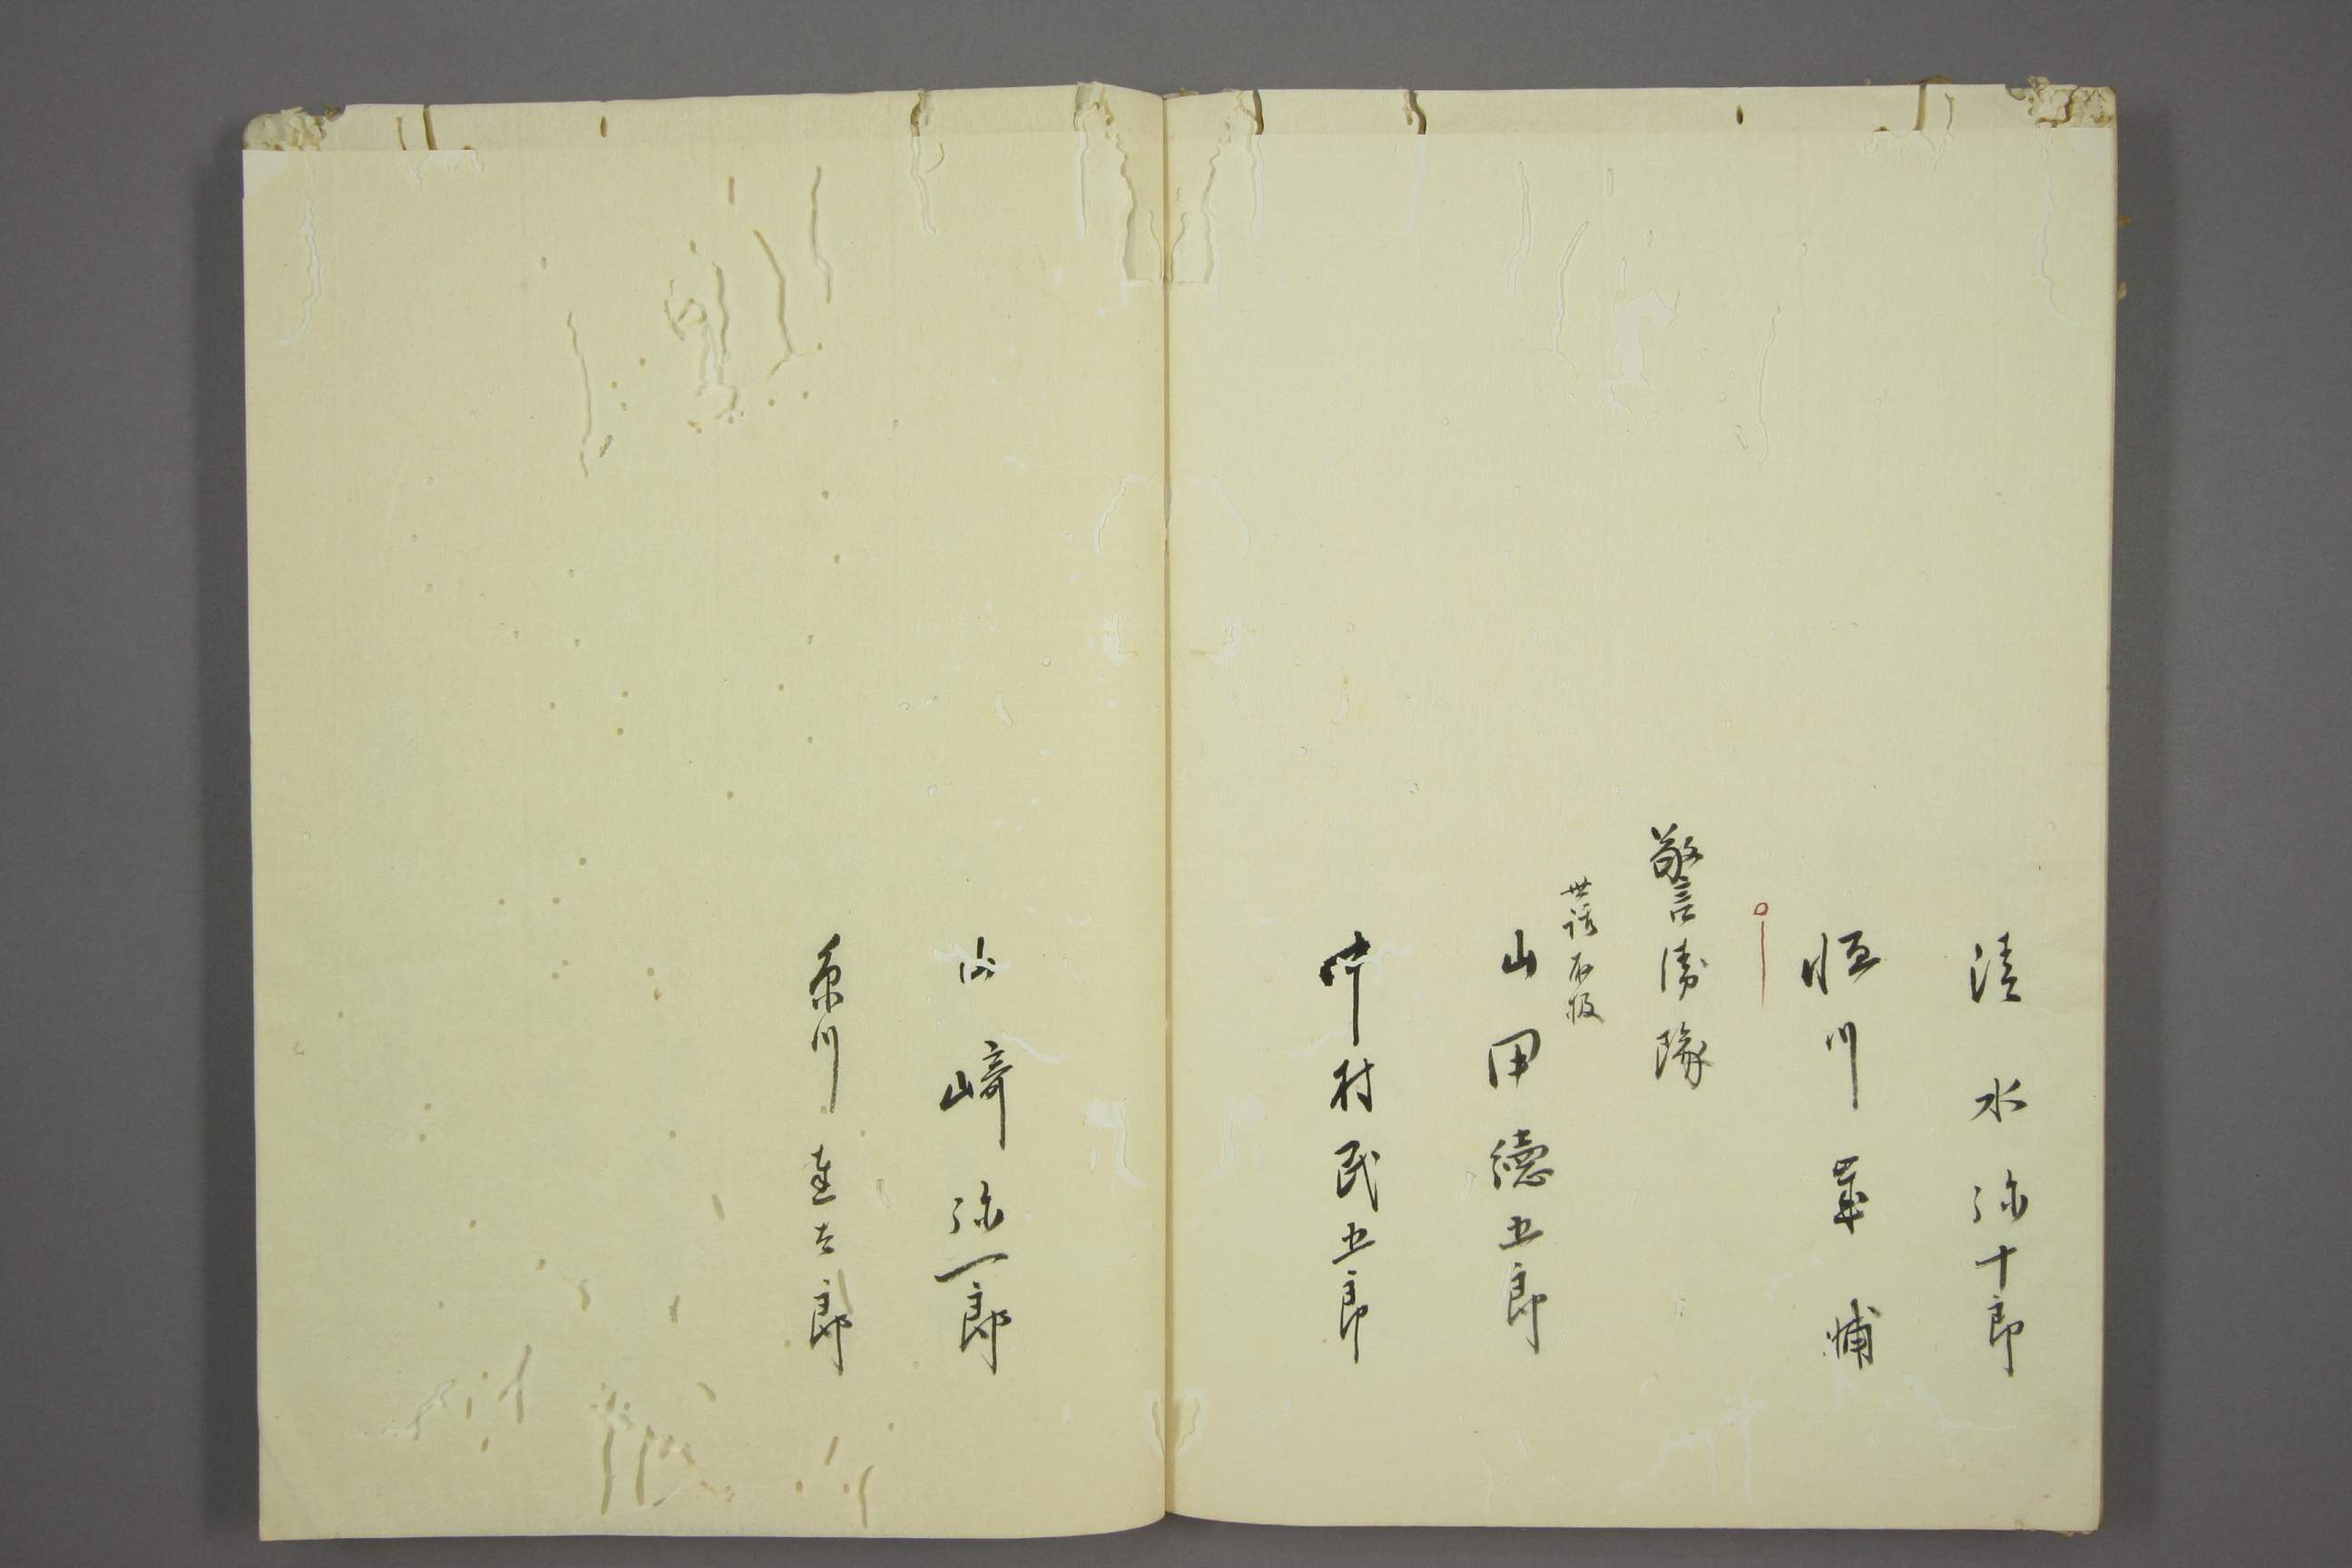 清水弥十郎
恒川華輔
警衛隊
世話取扱
山田徳五郎
中村民五郎
山崎弥一郎
糸川直太郎